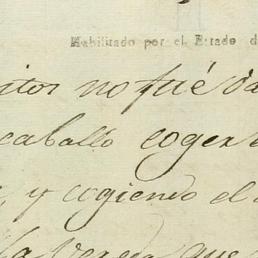 Habilitado por el Estado d
itos no fué va
caballo coger
, y cogiendo el
la vereda que